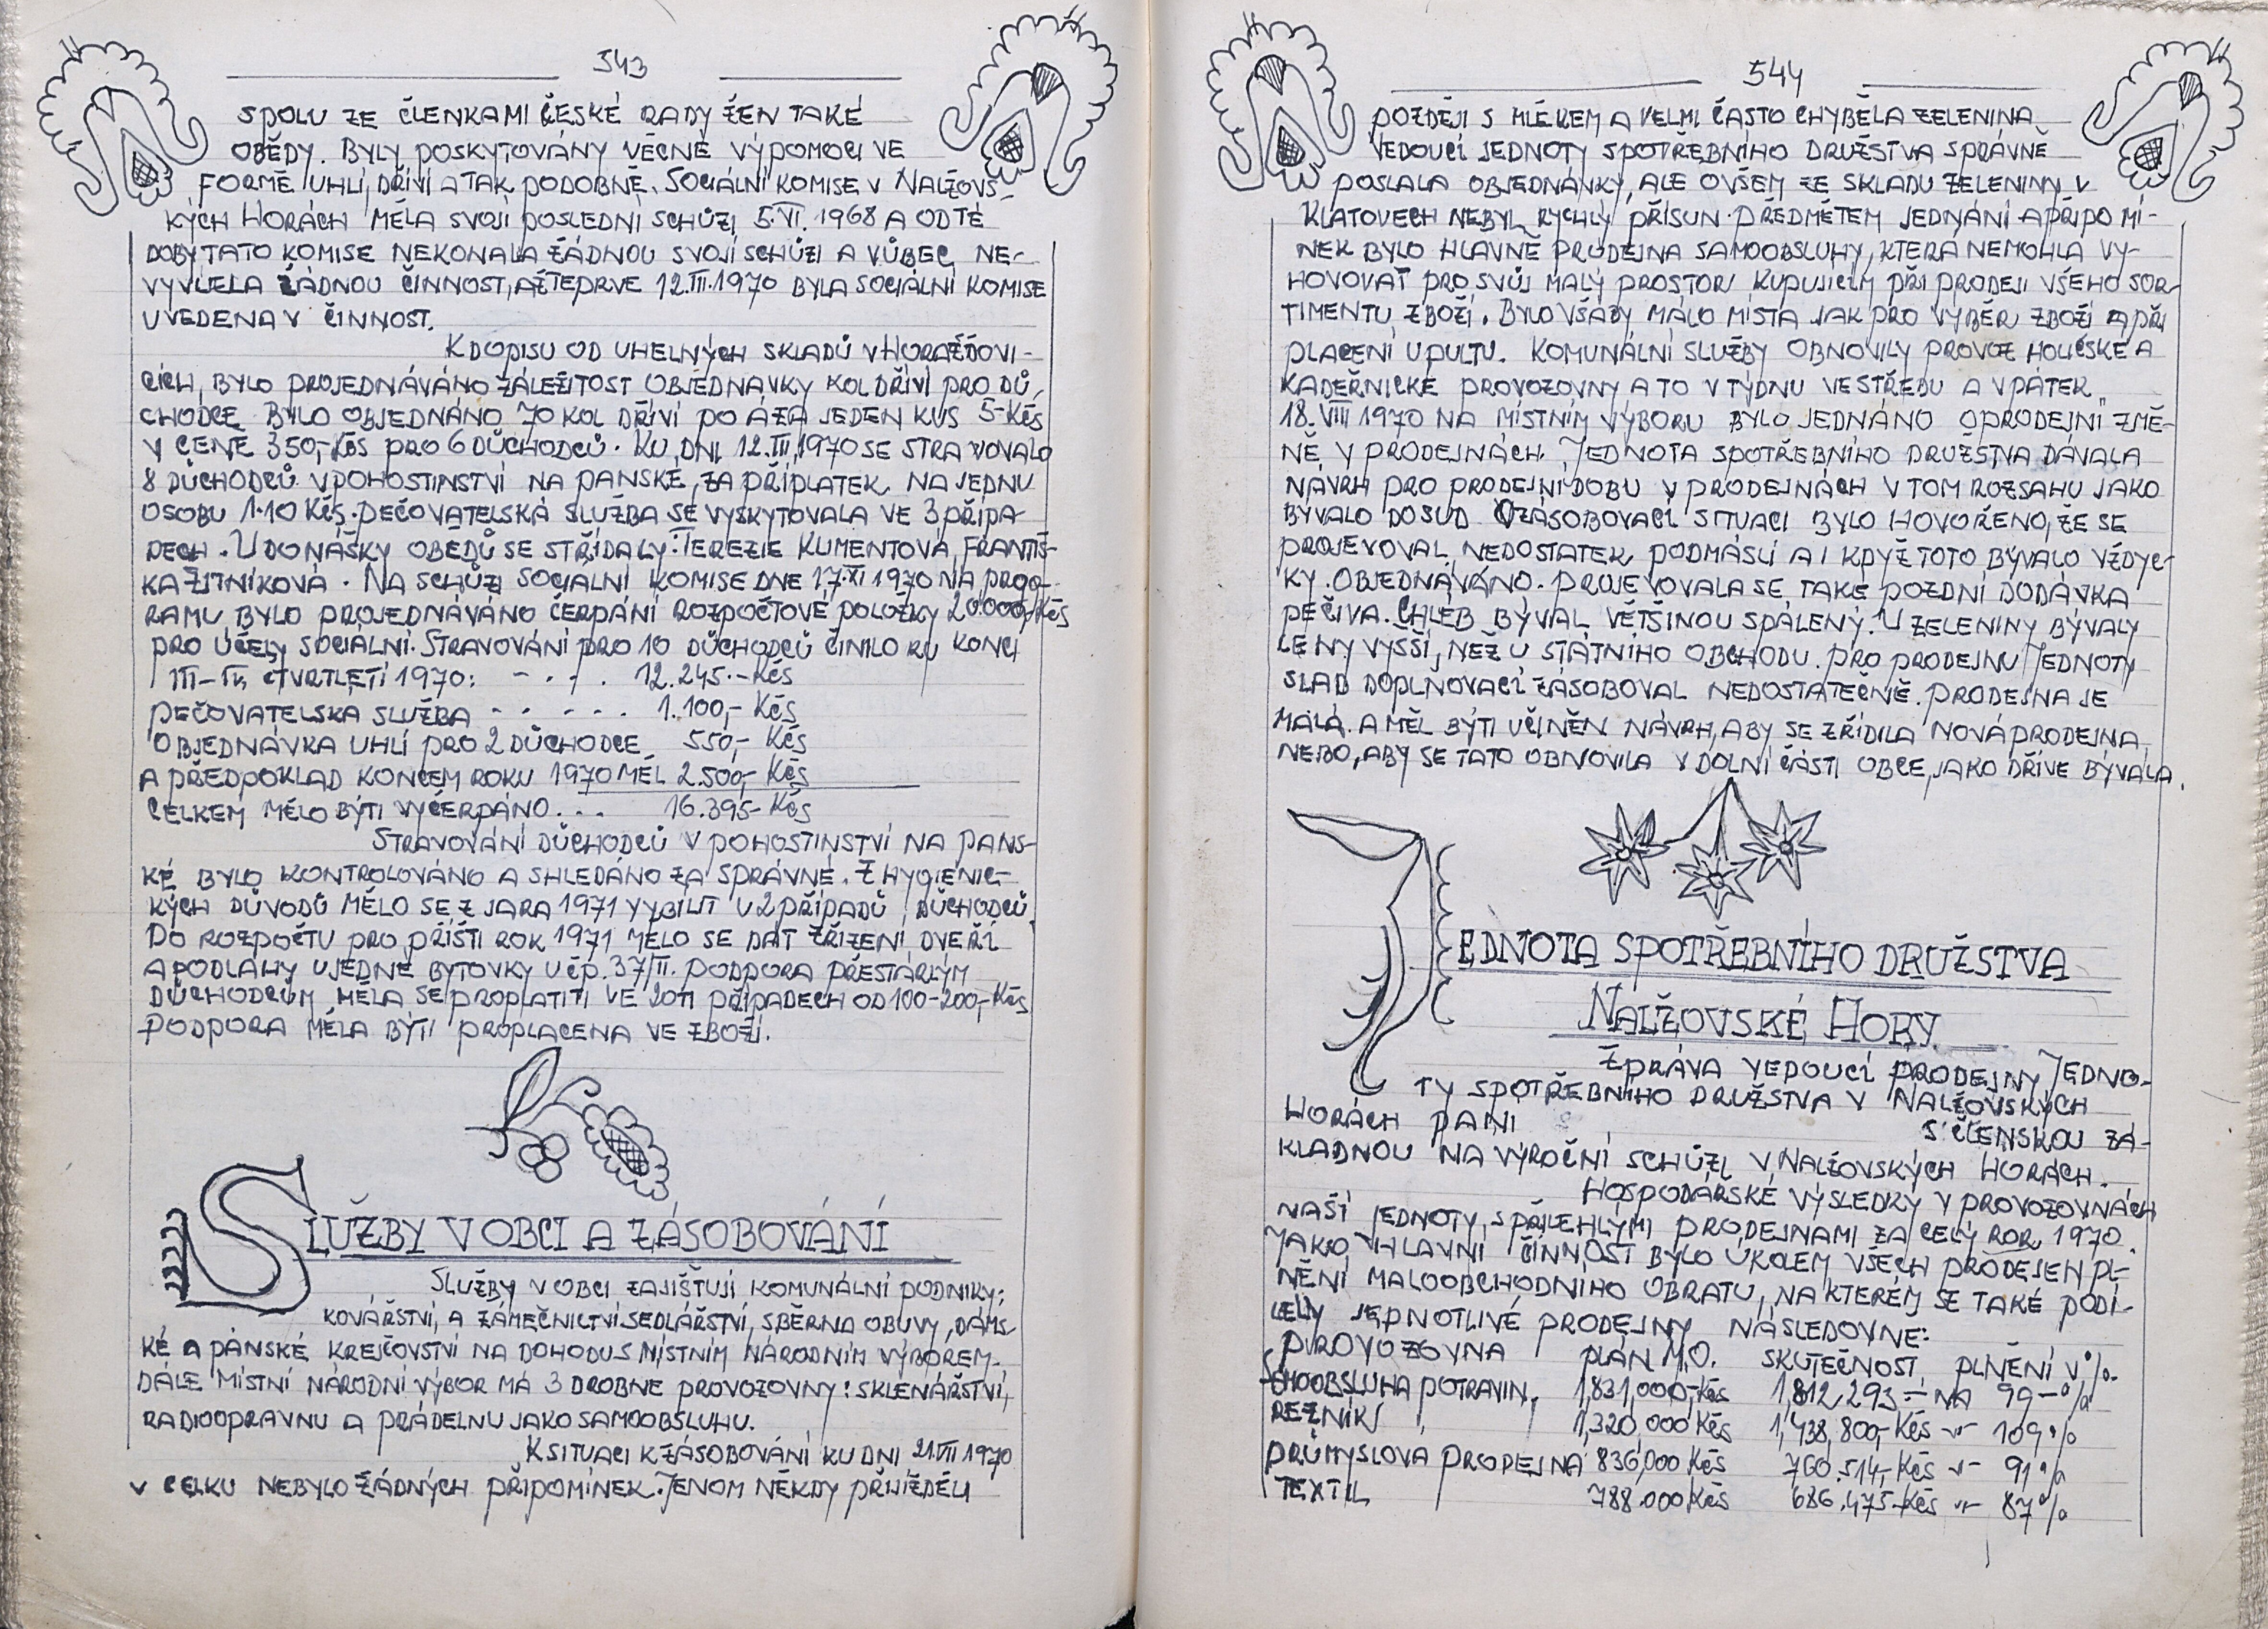 543
SPOLU ZE ČLENKAMI ČESKÉ RADY ŽEN TAKÉ
OBĚDY. BYLY POSKYTOVÁNY VĚCNÉ VÝPOMOCI VE
FORMĚ UHLÍ, DŘÍVÍ A TAK PODOBNĚ. SOCIÁLNÍ KOMISE V NALŽOVS-
KÝCH HORÁCH MĚLA SVOJÍ POSLEDNÍ SCHŮZI 5.VI. 1968 A OD TÉ
DOBY TATO KOMISE NEKONALA ŽÁDNOU SVOJÍ SCHŮZI A VŮBEC NE-
VYVÍJELA ŽÁDNOU ČINNOST, AŽ TEPRVE 12.III.1970 BYLA SOCIÁLNÍ KOMISE
UVEDENA V ČINNOST.
K DOPISU OD UHELNÝCH SKLADŮ V HORAŽĎOVI-
CÍCH, BYLO PROJEDNÁVÁNO ZÁLEŽITOST OBJEDNÁVKY KOL DŘÍVÍ PRO DŮ-
CHODCE BYLO OBJEDNÁNO 70 KOL DŘÍVÍ PO Á ZA JEDEN KUS 5-Kčs
V CENĚ 350,-Kčs PRO 6 DŮCHODCŮ. KU DNI 12.III.1970 SE STRAVOVALO
8 DŮCHODCŮ V POHOSTINSTVÍ NA PANSKÉ, ZA PŘÍPLATEK NA JEDNU
OSOBU 1.10 Kčs. PEČOVATELSKÁ SLUŽBA SE VYSKYTOVALA VE 3 PŘÍPA-
DECH. U DONÁŠKY OBĚDŮ SE STŘÍDALY: TEREZIE KUMENTOVÁ, FRANTIŠ-
KA ŽITNÍKOVÁ. NA SCHŮZI SOCIÁLNÍ KOMISE DNE 17.XI 1970 NA PROG-
RAMU BYLO PROJEDNÁVÁNO ČERPÁNÍ ROZPOČTOVÉ POLOŽKY 20000,-Kčs
PRO ÚČELY SOCIÁLNÍ. STRAVOVÁNÍ PRO 10 DŮCHODCŮ ČINILO KU KONCI
III-IV. ČTVRTLETÍ 1970: - . - . 12.245.-Kčs
PEČOVATELSKÁ SLUŽBA - - - - - 1.100,- Kčs
OBJEDNÁVKA UHLÍ PRO 2 DŮCHODCE 550,- Kčs
A PŘEDPOKLAD KONCEM ROKU 1970 MĚL 2.500,- Kčs
CELKEM MĚLO BÝTI VYČERPÁNO. . . 16.395- Kčs
STRAVOVÁNÍ DŮCHODCŮ V POHOSTINSTVÍ NA PANS-
KÉ BYLO KONTROLOVÁNO A SHLEDÁNO ZA SPRÁVNÉ. Z HYGIENIC-
KÝCH DŮVODŮ MĚLO SE Z JARA 1971 VYBÍLIT U 2 PŘÍPADŮ DŮCHODCŮ
DO ROZPOČTU PRO PŘÍŠTÍ ROK 1971 MĚLO SE DÁT ZŘÍZENÍ DVEŘÍ
A PODLAHY U JEDNÉ BYTOVKY U ČP. 37/II. PODPORA PŘESTÁRLÝM
DŮCHODCŮM MĚLA SE PROPLATITI VE 20TI PŘÍPADECH OD 100-200,-Kčs
PODPORA MĚLA BÝTI PROPLACENA VE ZBOŽÍ.
SLUŽBY V OBCI A ZÁSOBOVÁNÍ
SLUŽBY V OBCI ZAJIŠŤUJÍ KOMUNÁLNÍ PODNIKY:
KOVÁŘSTVÍ, A ZÁMEČNICTVÍ, SEDLÁŘSTVÍ, SBĚRNA OBUVY, DÁMS-
KÉ A PÁNSKÉ KREJČOVSTVÍ NA DOHODU S MÍSTNÍM NÁRODNÍM VÝBOREM.
DÁLE MÍSTNÍ NÁRODNÍ VÝBOR MÁ 3 DROBNÉ PROVOZOVNY: SKLENÁŘSTVÍ,
RADIOOPRAVNU A PRÁDELNU JAKO SAMOOBSLUHU.
K SITUACI K ZÁSOBOVÁNÍ KU DNI 21.VII 1970
V CELKU NEBYLO ŽÁDNÝCH PŘIPOMÍNEK. JENOM NĚKDY PŘIJÍŽDĚLI
544
POZDĚJI S MLÉKEM A VELMI ČASTO CHYBĚLA ZELENINA
VEDOUCÍ JEDNOTY SPOTŘEBNÍHO DRUŽSTVA SPRÁVNĚ
POSLALA OBJEDNÁVKY, ALE OVŠEM ZE SKLADU ZELENINY V
KLATOVECH NEBYL RYCHLÝ PŘÍSUN. PŘEDMĚTEM JEDNÁNÍ A PŘIPOMÍ-
NEK BYLO HLAVNĚ PRODEJNA SAMOOBSLUHY, KTERÁ NEMOHLA VY-
HOVOVAT PRO SVŮJ MALÝ PROSTOR KUPUJÍCÍM PŘI PRODEJI VŠEHO SOR-
TIMENTU ZBOŽÍ. BYLO VŠADY MÁLO MÍSTA JAK PRO VÝBĚR ZBOŽÍ A PŘI
PLACENÍ U PULTU. KOMUNÁLNÍ SLUŽBY OBNOVILY PROVOZ HOLIČSKÉ A
KADEŘNICKÉ PROVOZOVNY A TO V TÝDNU VE STŘEDU A V PÁTEK
18.VIII 1970 NA MÍSTNÍM VÝBORU BYLO JEDNÁNO O PRODEJNÍ ZMĚ-
NĚ V PRODEJNÁCH. JEDNOTA SPOTŘEBNÍHO DRUŽSTVA DÁVALA
NÁVRH PRO PRODEJNÍ DOBU V PRODEJNÁCH V TOM ROZSAHU JAKO
BÝVALO DOSUD O ZÁSOBOVACÍ SITUACI BYLO HOVOŘENO, ŽE SE
PROJEVOVAL NEDOSTATEK PODMÁSLÍ A I KDYŽ TOTO BÝVALO VŽDYC-
KY OBJEDNÁVÁNO. PROJEVOVALA SE TAKÉ POZDNÍ DODÁVKA
PEČIVA. CHLÉB BÝVAL VĚTŠINOU SPÁLENÝ. U ZELENINY BÝVALY
CENY VYŠŠÍ, NEŽ U STÁTNÍHO OBCHODU. PRO PRODEJNU JEDNOTY
SLAD DOPLŇOVACÍ ZÁSOBOVAL NEDOSTATEČNĚ. PRODEJNA JE
MALÁ. A MĚL BÝTI UČINĚN NÁVRH, ABY SE ZŘÍDILA NOVÁ PRODEJNA
NEBO, ABY SE TATO OBNOVILA V DOLNÍ ČÁSTI OBCE, JAKO DŘÍVE BÝVALA.
JEDNOTA SPOTŘEBNÍHO DRUŽSTVA
NALŽOVSKÉ HORY
ZPRÁVA VEDOUCÍ PRODEJNY JEDNO-
TY SPOTŘEBNÍHO DRUŽSTVA V NALŽOVSKÝCH
HORÁCH PANÍ S ČLENSKOU ZÁ-
KLADNOU NA VÝROČNÍ SCHŮZI V NALŽOVSKÝCH HORÁCH.
HOSPODÁŘSKÉ VÝSLEDKY V PROVOZOVNÁCH
NAŠÍ JEDNOTY, S PŘILEHLÝMI PRODEJNAMI ZA CELÝ ROK 1970.
JAKO HLAVNÍ ČINNOST BYLO ÚKOLEM VŠECH PRODEJEN PL-
NĚNÍ MALOOBCHODNÍHO OBRATU, NA KTERÉM SE TAKÉ PODÍ-
LELY JEDNOTLIVÉ PRODEJNY NÁSLEDOVNĚ:
PROVOZOVNA PLÁN M.O. SKUTEČNOST PLNĚNÍ V %.
SAMOOBSLUHA POTRAVIN. 1,831,000,-Kčs 1,812,293 = NA 99 - %
ŘEZNÍK 1,320,000 Kčs 1,438,800,-Kčs -"- 109 %
PRŮMYSLOVÁ PRODEJNA 836,000 Kčs 760.514,-Kčs -"- 91 %
TEXTIL 788.000 Kčs 686.475-Kčs -"- 87 %